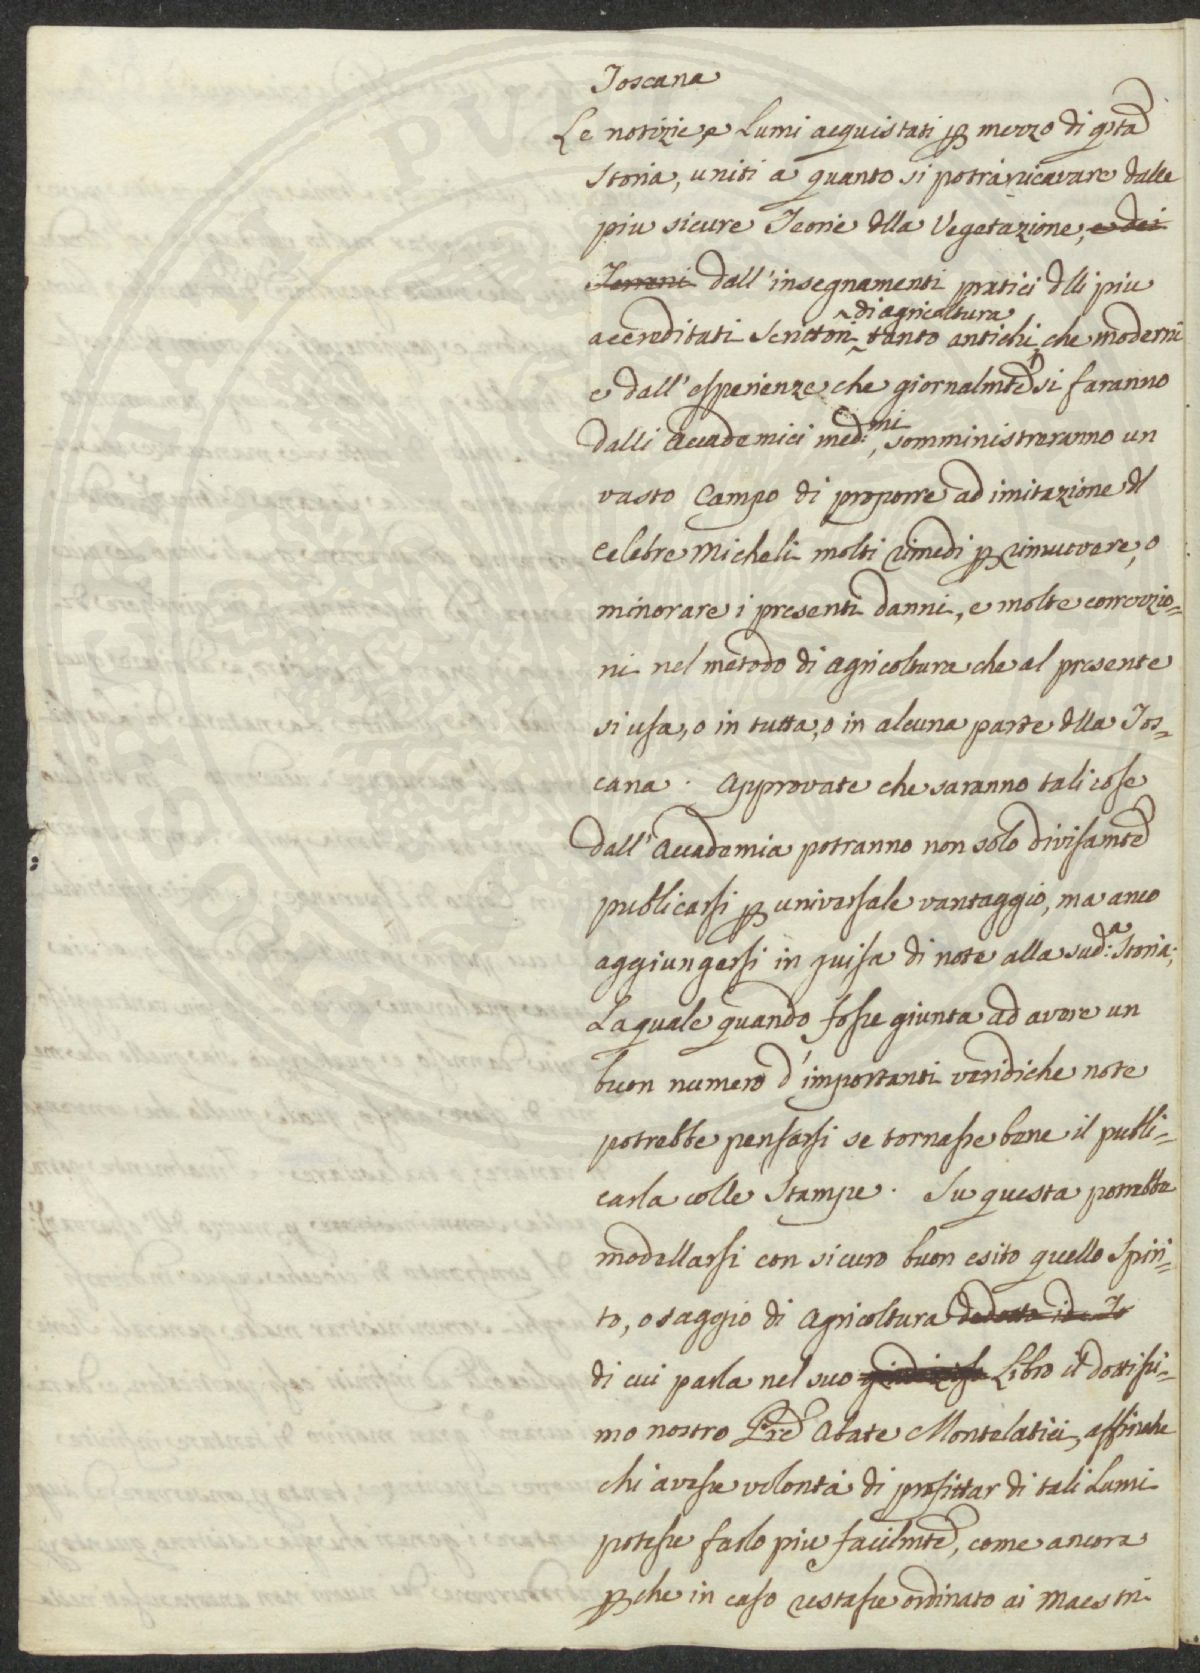 Toscana
Le notizie, e Lumi acquistati p mezzo di qta
Storia, uniti a quanto si potrà ricavare dalle
piu sicure Teorie dlla Vegetazione, e dei
Terreni dall'insegnamenti pratici dlli piu
di agricoltura
accreditati Scrittori tanto antichi, che moderni
e dall'esperienze che giornalmte si faranno
dalli Accademici med:mi, somministreranno un
vasto Campo di proporre ad imitazione dl
Celebre Micheli molti rimedi p rimuovere, o
minorare i presenti danni, e molte correzio=
ni nel metodo di Agricoltura che al presente
si usa, o in tutta, o in alcuna parte dlla Tos=
cana. Approvate che saranno tali cose
dall'Accademia potranno non solo divisamte
publicarsi p universale vantaggio, ma anco
aggiungersi in guisa di note alla sud:a Storia;
La quale quando fosse giunta ad avere un
buon numero d'importanti veridiche note
potrebbe pensarsi se tornasse bene il publi=
carla colle Stampe. Su questa potrebbe
modellarsi con sicuro buon esito quello Spiri=
to, o saggio di Agricoltura
di cui parla nel suo Libro il dottissi=
mo nostro Pre Abate Montelatici, affinche
chi avesse volontà di profittar di tali Lumi
potesse farlo piu facilmte, come ancora
pche in caso restasse ordinato ai Maestri